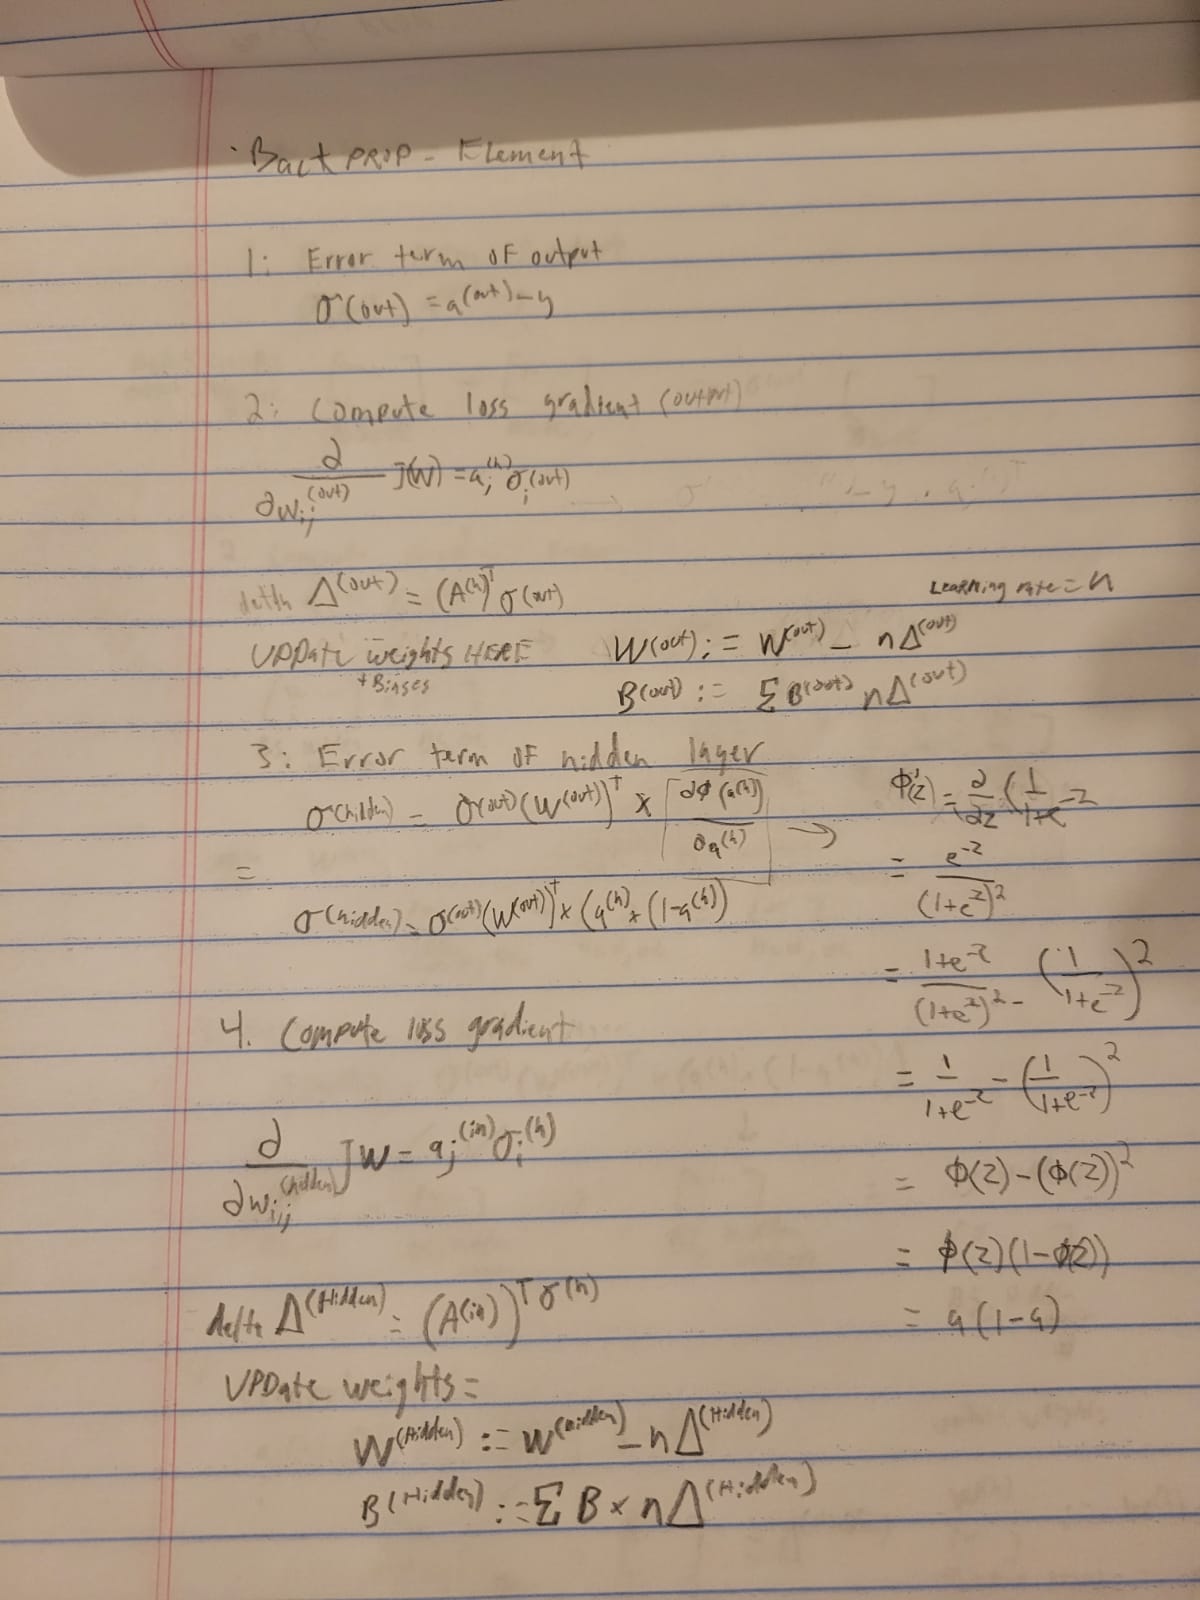 · Back PROP - Element
1: Error term OF output
σ(out) = a^(out) - y
2: Compute loss gradient (output)
∂/∂w_i,j^(out) J(W) = a_j^(h) σ_i^(out)
delta Δ^(out) = (A^(h))^T σ^(out)
Learning rate = n
UPDate weights HERE
+ Biases
W^(out) := W^(out) - nΔ^(out)
B^(out) := Σ B^(out) nΔ^(out)
3: Error term OF hidden layer
σ^(hidden) = σ^(out) (W^(out))^T × [∂φ(a^(h))/∂a^(h)] →
=
σ^(hidden) = σ^(out) (W^(out))^T × (a^(h) × (1-a^(h))
φ'(z) = ∂/∂z (1/1+e^-z
= e^-z/(1+e^-z)^2
= 1+e^-z/(1+e^-z)^2 - (1/1+e^-z)^2
= 1/1+e^-z - (1/1+e^-z)^2
= φ(z) - (φ(z))^2
= φ(z)(1-φ(z))
= a(1-a)
4. Compute loss gradient
∂/∂w_i,j^(hidden) JW = a_j^(in) σ_i^(h)
delta Δ^(Hidden) = (A^(in))^T σ^(h)
UPDate weights =
W^(Hidden) := W^(Hidden) - nΔ^(Hidden)
B^(Hidden) := Σ B × nΔ^(Hidden)